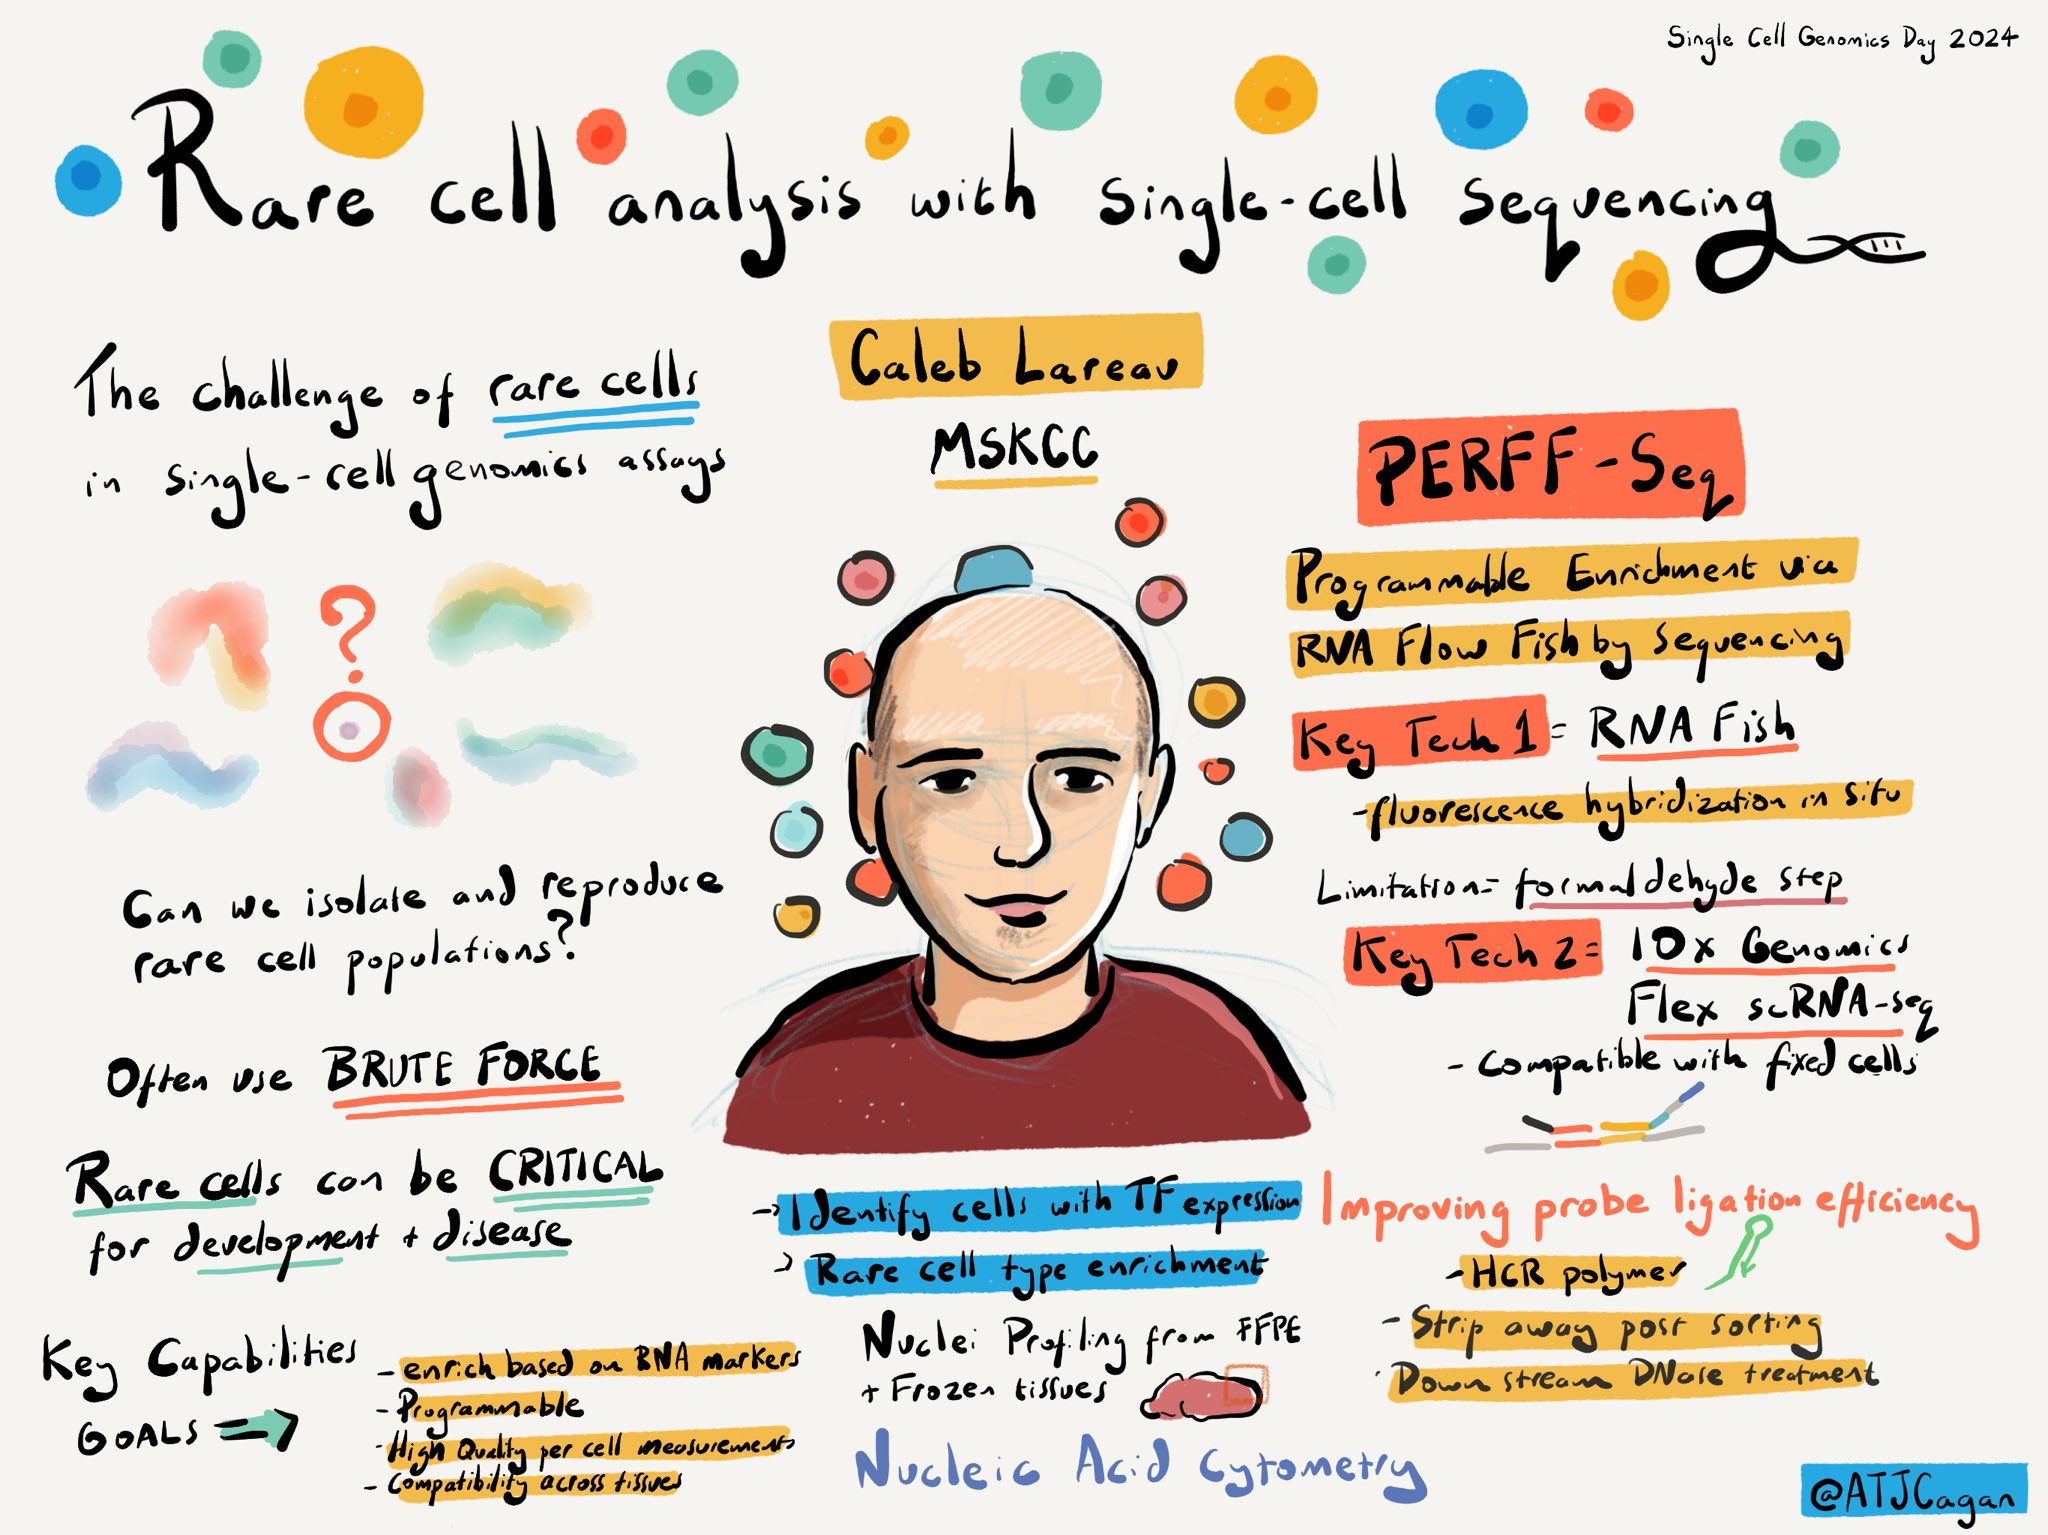 Single Cell Genomics Day 2024
Rare cell analysis with single-cell sequencing
Caleb Lareau
MSKCC
The challenge of rare cells
in single-cell genomics assays
?
Can we isolate and reproduce
rare cell populations?
Often use BRUTE FORCE
Rare cells can be CRITICAL
for development + disease
Key Capabilities
GOALS
- enrich based on RNA markers
- Programmable
- High Quality per cell measurements
- Compatibility across tissues
→ Identify cells with TF expression
→ Rare cell type enrichment
Nuclei Profiling from FFPE
+ Frozen tissues
Nucleic Acid Cytometry
PERFF-Seq
Programmable Enrichment via
RNA Flow Fish by Sequencing
Key Tech 1 = RNA Fish
- fluorescence hybridization in situ
Limitation = formaldehyde step
Key Tech 2 = 10x Genomics
Flex scRNA-seq
- Compatible with fixed cells
Improving probe ligation efficiency
- HCR polymer
- Strip away post sorting
- Down stream DNase treatment
@ATJCagan